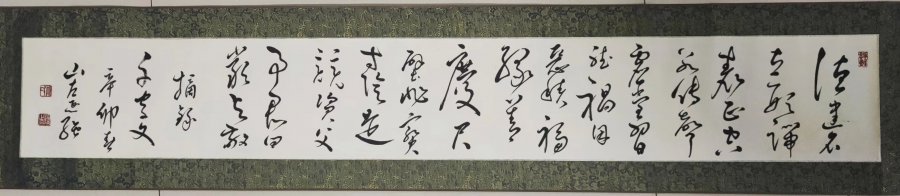 德建名
立形端
表正空
谷传声
虚堂习
听祸因
恶积福
缘善
庆尺
璧非宝
寸阴是
竞资父
事君曰
严与敬
摘録
千字文
辛卯春